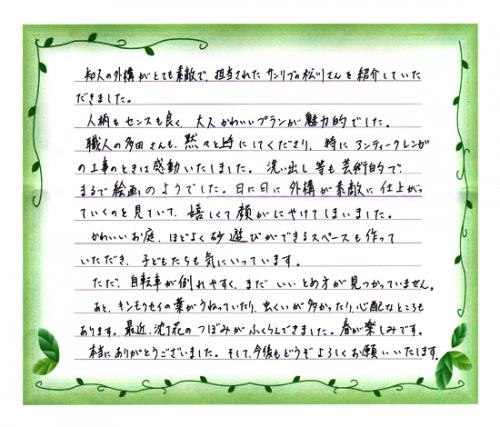 知人の外構がとても素敵で、担当されたサンリブの松川さんを紹介していた
だきました。
人柄もセンスも良く、大人かわいいプランが魅力的でした。
職人の多田さんも、黙々と上時にしてくださり、特にアンティークレンガ
の工事のときは感動いたしました。洗い出し等も芸術的で、
まるで絵画のようでした。日に日に外構が素敵に仕上がっ
ていくのを見ていて、嬉しくて顔がにやけてしまいました。
かわいいお庭、ほどよく砂遊びができるスペースも作って
いただき、子どもたちも気にいっています。
ただ、自転車が倒れやすく、まだいいとめ方が見つかっていません。
あと、キンモクセイの葉がうねっていたり、虫くいが多かったり、心配なところも
あります。最近、沈丁花のつぼみがふくらんできました。春が楽しみです。
本当にありがとうございました。そして、今後もどうぞよろしくお願いいたします。